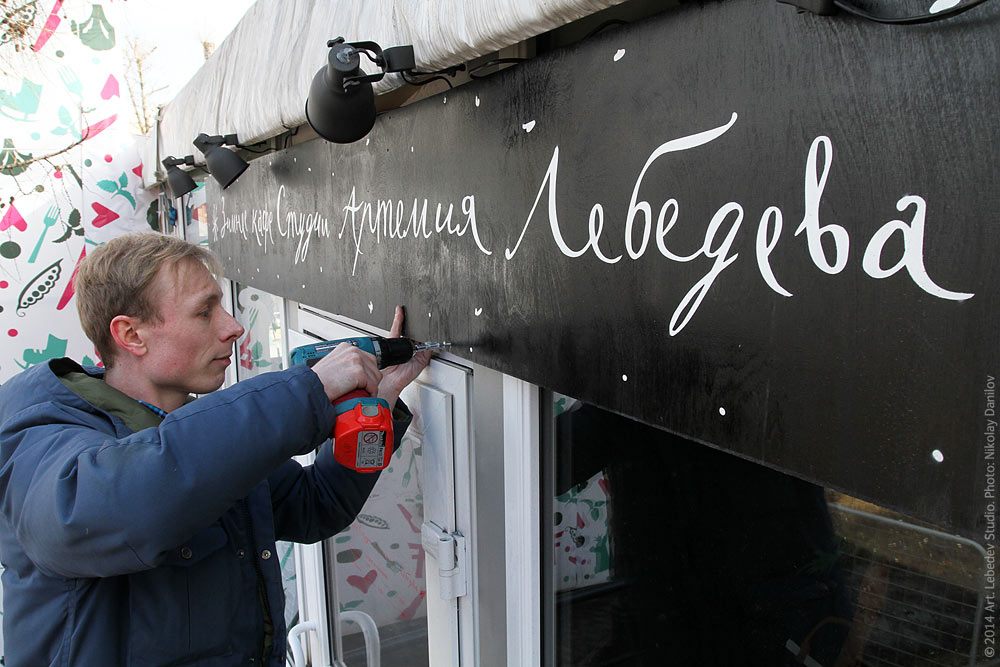 * Зимнее кафе Студии Артемия Лебедева
© 2014 Art. Lebedev Studio. Photo: Nikolay Danilov